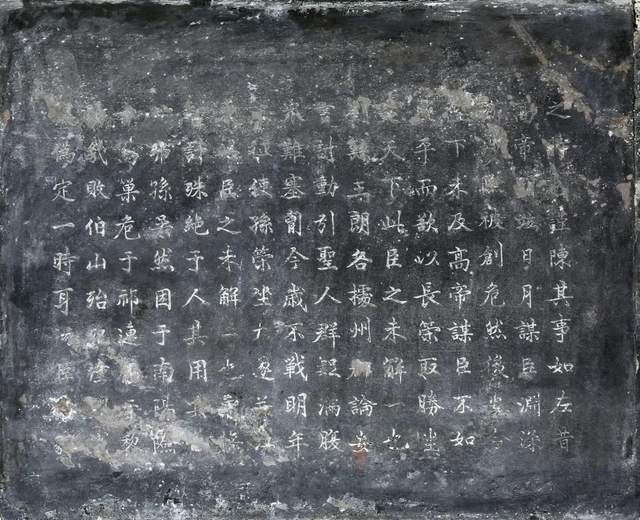 之謹陳其事如左昔
帝並日月謀臣淵深
險被創危然後安今
下未及高帝謀臣不如
平而欲以長策取勝坐
天下此臣之未解一也
王朗各據州郡論安
言計動引聖人群疑滿腹
眾難塞胷今歲不戰明年
征使孫策坐大遂并江
臣之未解二也曹操
計殊絕于人其用兵
孫吳然困于南陽險
烏巢危于祁連偪于黎
幾敗伯山殆死潼
偽定一時耳況臣